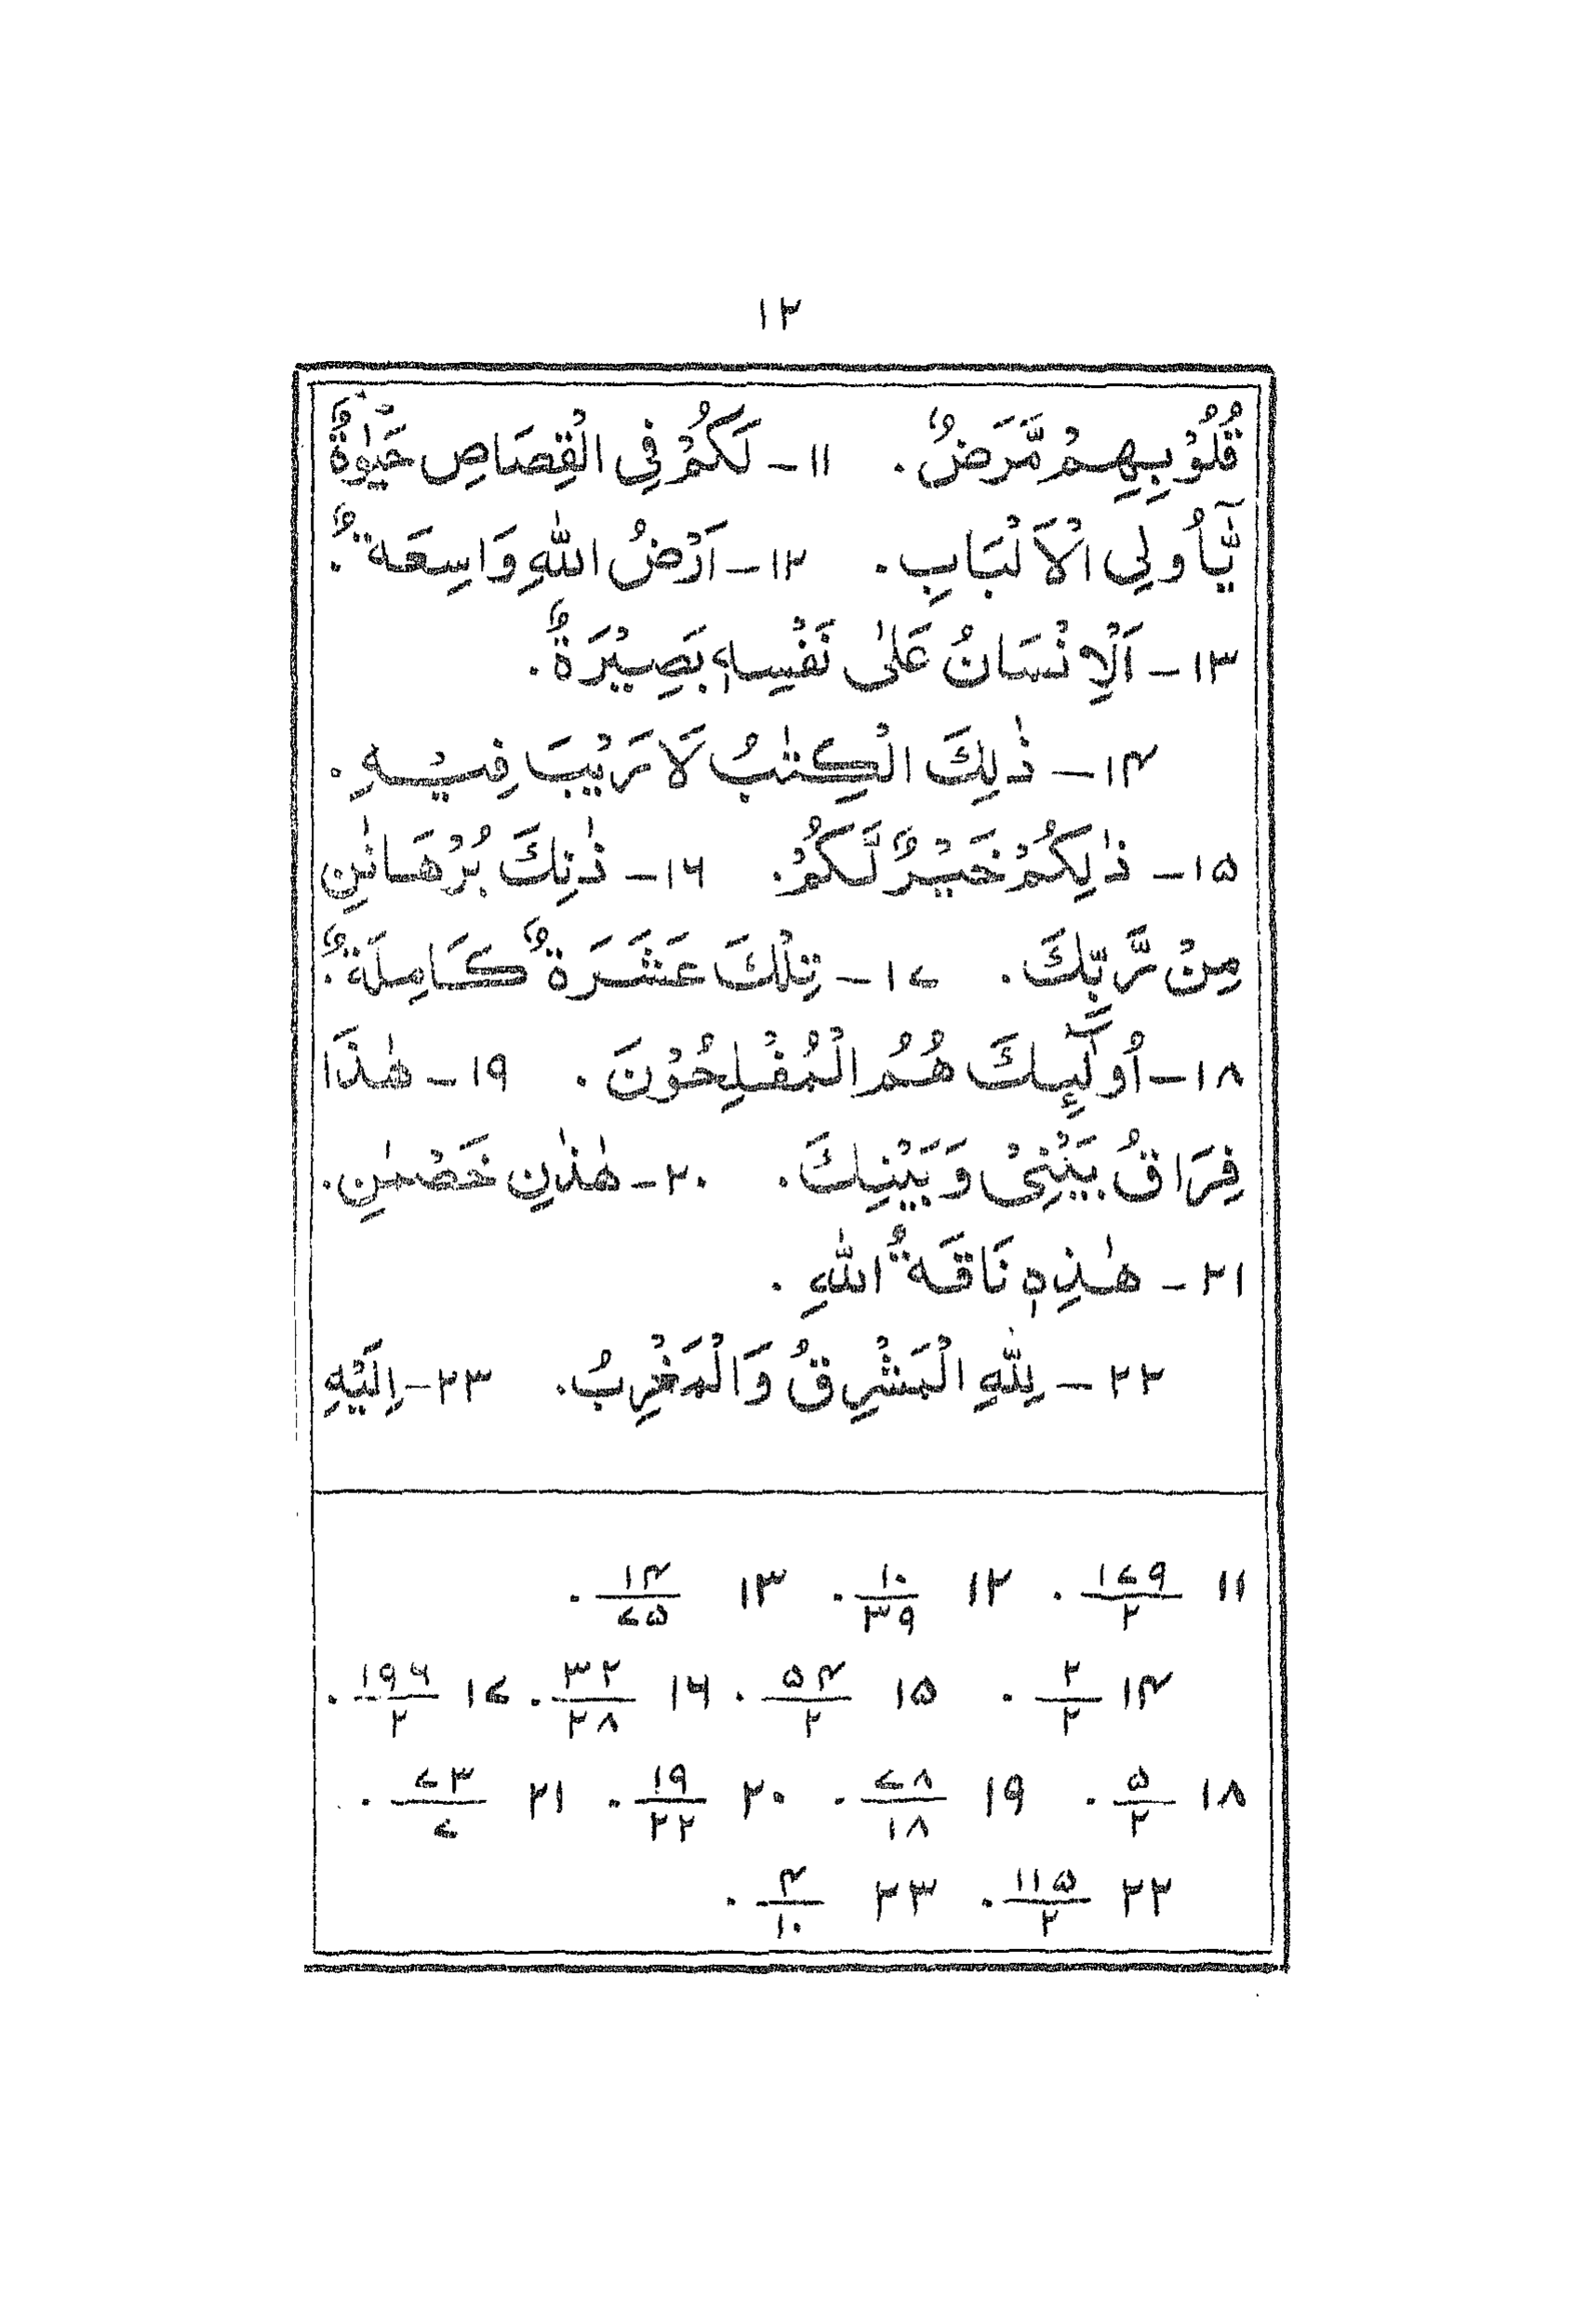 ۱۲
قُلُوْبِهِمْ مَّرَضٌ. ۱۱- لَكُمْ فِي الْقِصَاصِ حَيٰوةٌ
يّٰٓأُولِي الْاَلْبَابِ. ۱۲- اَرْضُ اللّٰهِ وَاسِعَةٌ.
۱۳- اَلْاِنْسَانُ عَلٰى نَفْسِهٖ بَصِيْرَةٌ.
۱۴- ذٰلِكَ الْكِتٰبُ لَا رَيْبَ فِيْهِ.
۱۵- ذٰلِكُمْ خَيْرٌ لَّكُمْ. ۱۶- ذٰنِكَ بُرْهَانٰنِ
مِنْ رَّبِّكَ. ۱۷- تِلْكَ عَشَرَةٌ كَامِلَةٌ.
۱۸- اُولٰٓئِكَ هُمُ الْمُفْلِحُوْنَ. ۱۹- هٰذَا
فِرَاقُ بَيْنِيْ وَبَيْنِكَ. ۲۰- هٰذٰنِ خَصْمٰنِ.
۲۱- هٰذِهٖ نَاقَةُ اللّٰهِ.
۲۲- لِلّٰهِ الْمَشْرِقُ وَالْمَغْرِبُ. ۲۳- اِلَيْهِ
۱۱ ۱۷۹/۲. ۱۲ ۱۰/۳۹. ۱۳ ۱۴/۷۵.
۱۴ ۲/۲. ۱۵ ۵۴/۲. ۱۶ ۳۲/۲۸. ۱۷ ۱۹۶/۲.
۱۸ ۵/۲. ۱۹ ۷۸/۱۸. ۲۰ ۱۹/۲۲. ۲۱ ۷۳/۷.
۲۲ ۱۱۵/۲. ۲۳ ۴/۱۰.